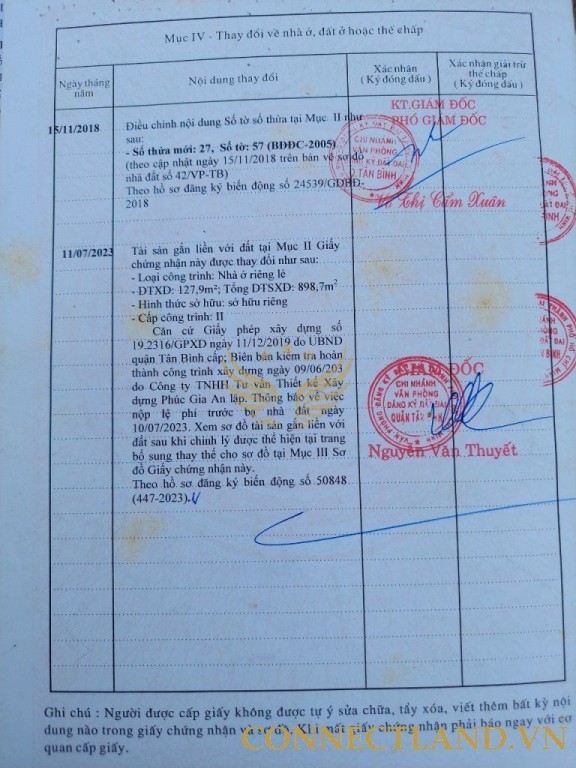 Mục IV - Thay đổi về nhà ở, đất ở hoặc thế chấp
Ngày tháng năm
Nội dung thay đổi
Xác nhận
( Ký đóng dấu )
Xác nhận giải trừ
thế chấp
( Ký đóng dấu )
15/11/2018
Điều chỉnh nội dung Số tờ số thửa tại Mục II như
sau:
- Số thửa mới: 27, Số tờ: 57 (BĐĐC-2005)
(theo cập nhật ngày 15/11/2018 trên bản vẽ sơ đồ
nhà đất số 42/VP-TB)
Theo hồ sơ đăng ký biến động số 24539/GDHĐ-
2018
KT.GIÁM ĐỐC
PHÓ GIÁM ĐỐC
CHI NHÁNH
VĂN PHÒNG
ĐĂNG KÝ ĐẤT ĐAI
Q.TÂN BÌNH
Võ Thị Cẩm Xuân
11/07/2023
Tài sản gắn liền với đất tại Mục II Giấy
chứng nhận này được thay đổi như sau:
- Loại công trình: Nhà ở riêng lẻ
- DTXD: 127,9m²; Tổng DTSXD: 898,7m²
- Hình thức sở hữu: sở hữu riêng
- Cấp công trình: II
Căn cứ Giấy phép xây dựng số
19.2316/GPXD ngày 11/12/2019 do UBND
quận Tân Bình cấp; Biên bản kiểm tra hoàn
thành công trình xây dựng ngày 09/06/203
do Công ty TNHH Tư vấn Thiết kế Xây
dựng Phúc Gia An lập. Thông báo về việc
nộp lệ phí trước bạ nhà đất ngày
10/07/2023. Xem sơ đồ tài sản gắn liền với
đất sau khi chỉnh lý được thể hiện tại trang
bổ sung thay thế cho sơ đồ tại Mục III Sơ
đồ Giấy chứng nhận này.
Theo hồ sơ đăng ký biến động số 50848
(447-2023)
GIÁM ĐỐC
CHI NHÁNH
VĂN PHÒNG
ĐĂNG KÝ ĐẤT ĐAI
QUẬN TÂN BÌNH
Nguyễn Văn Thuyết
Ghi chú : Người được cấp giấy không được tự ý sửa chữa, tẩy xóa, viết thêm bất kỳ nội
dung nào trong giấy chứng nhận và sơ đồ. Khi mất giấy chứng nhận phải báo ngay với cơ
quan cấp giấy.
CONNECTLAND.VN